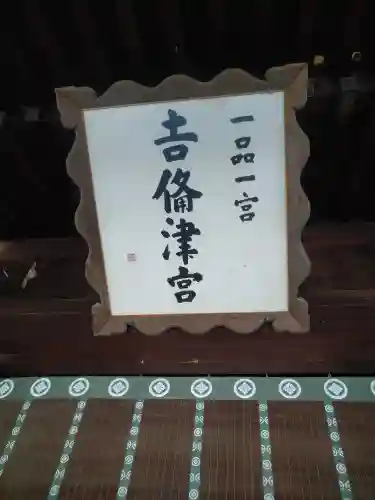 一品一宮
𠮷備津宮